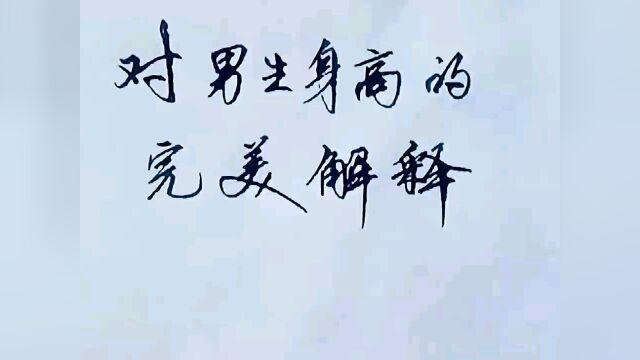 对男生身高的
完美解释